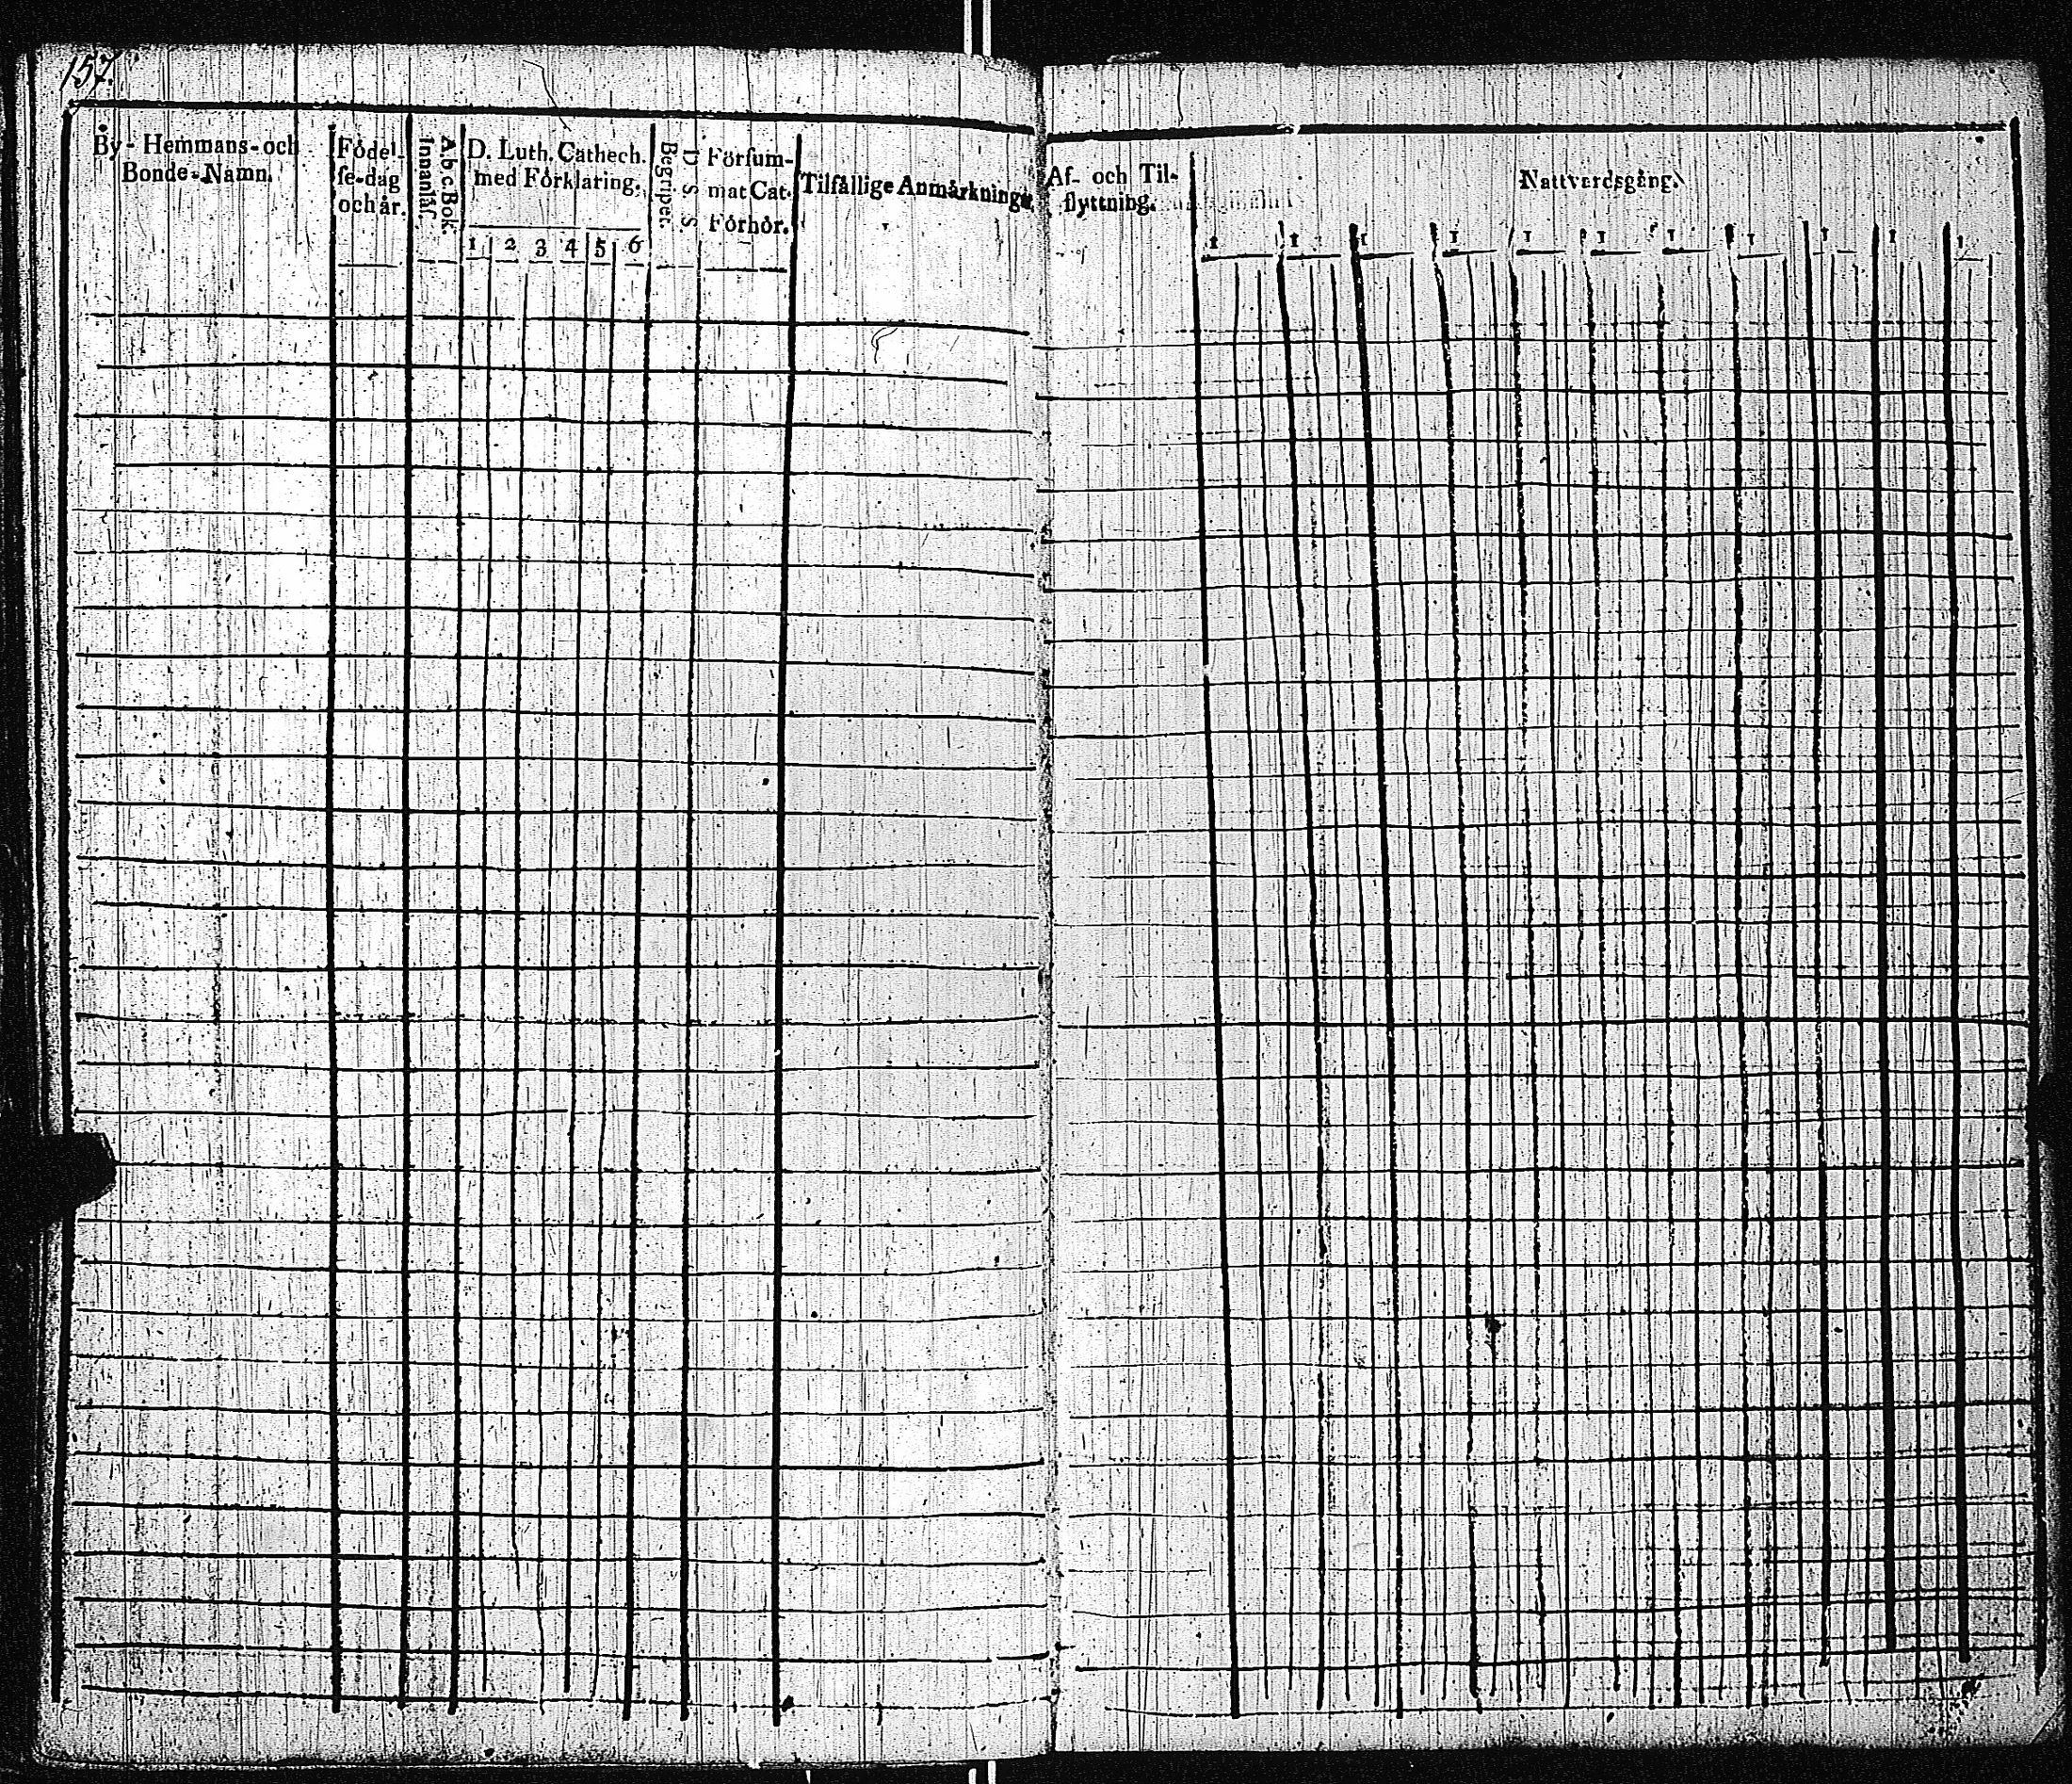 157.
By- Hemmans- och
Bonde-Namn.
Födel-
se-dag
och år.
A.b.c.Bok.
Innanläs.
D. Luth. Cathech.
med Förklaring.
1 2 3 4 5 6
D. S. S
Begripet.
Försum-
mat Cat.
Förhör.
Tilfällige Anmärkning.
Af- och Til-
flyttning.
Nattvardsgång.
1 1 1 1 1 1 1 1 1 1